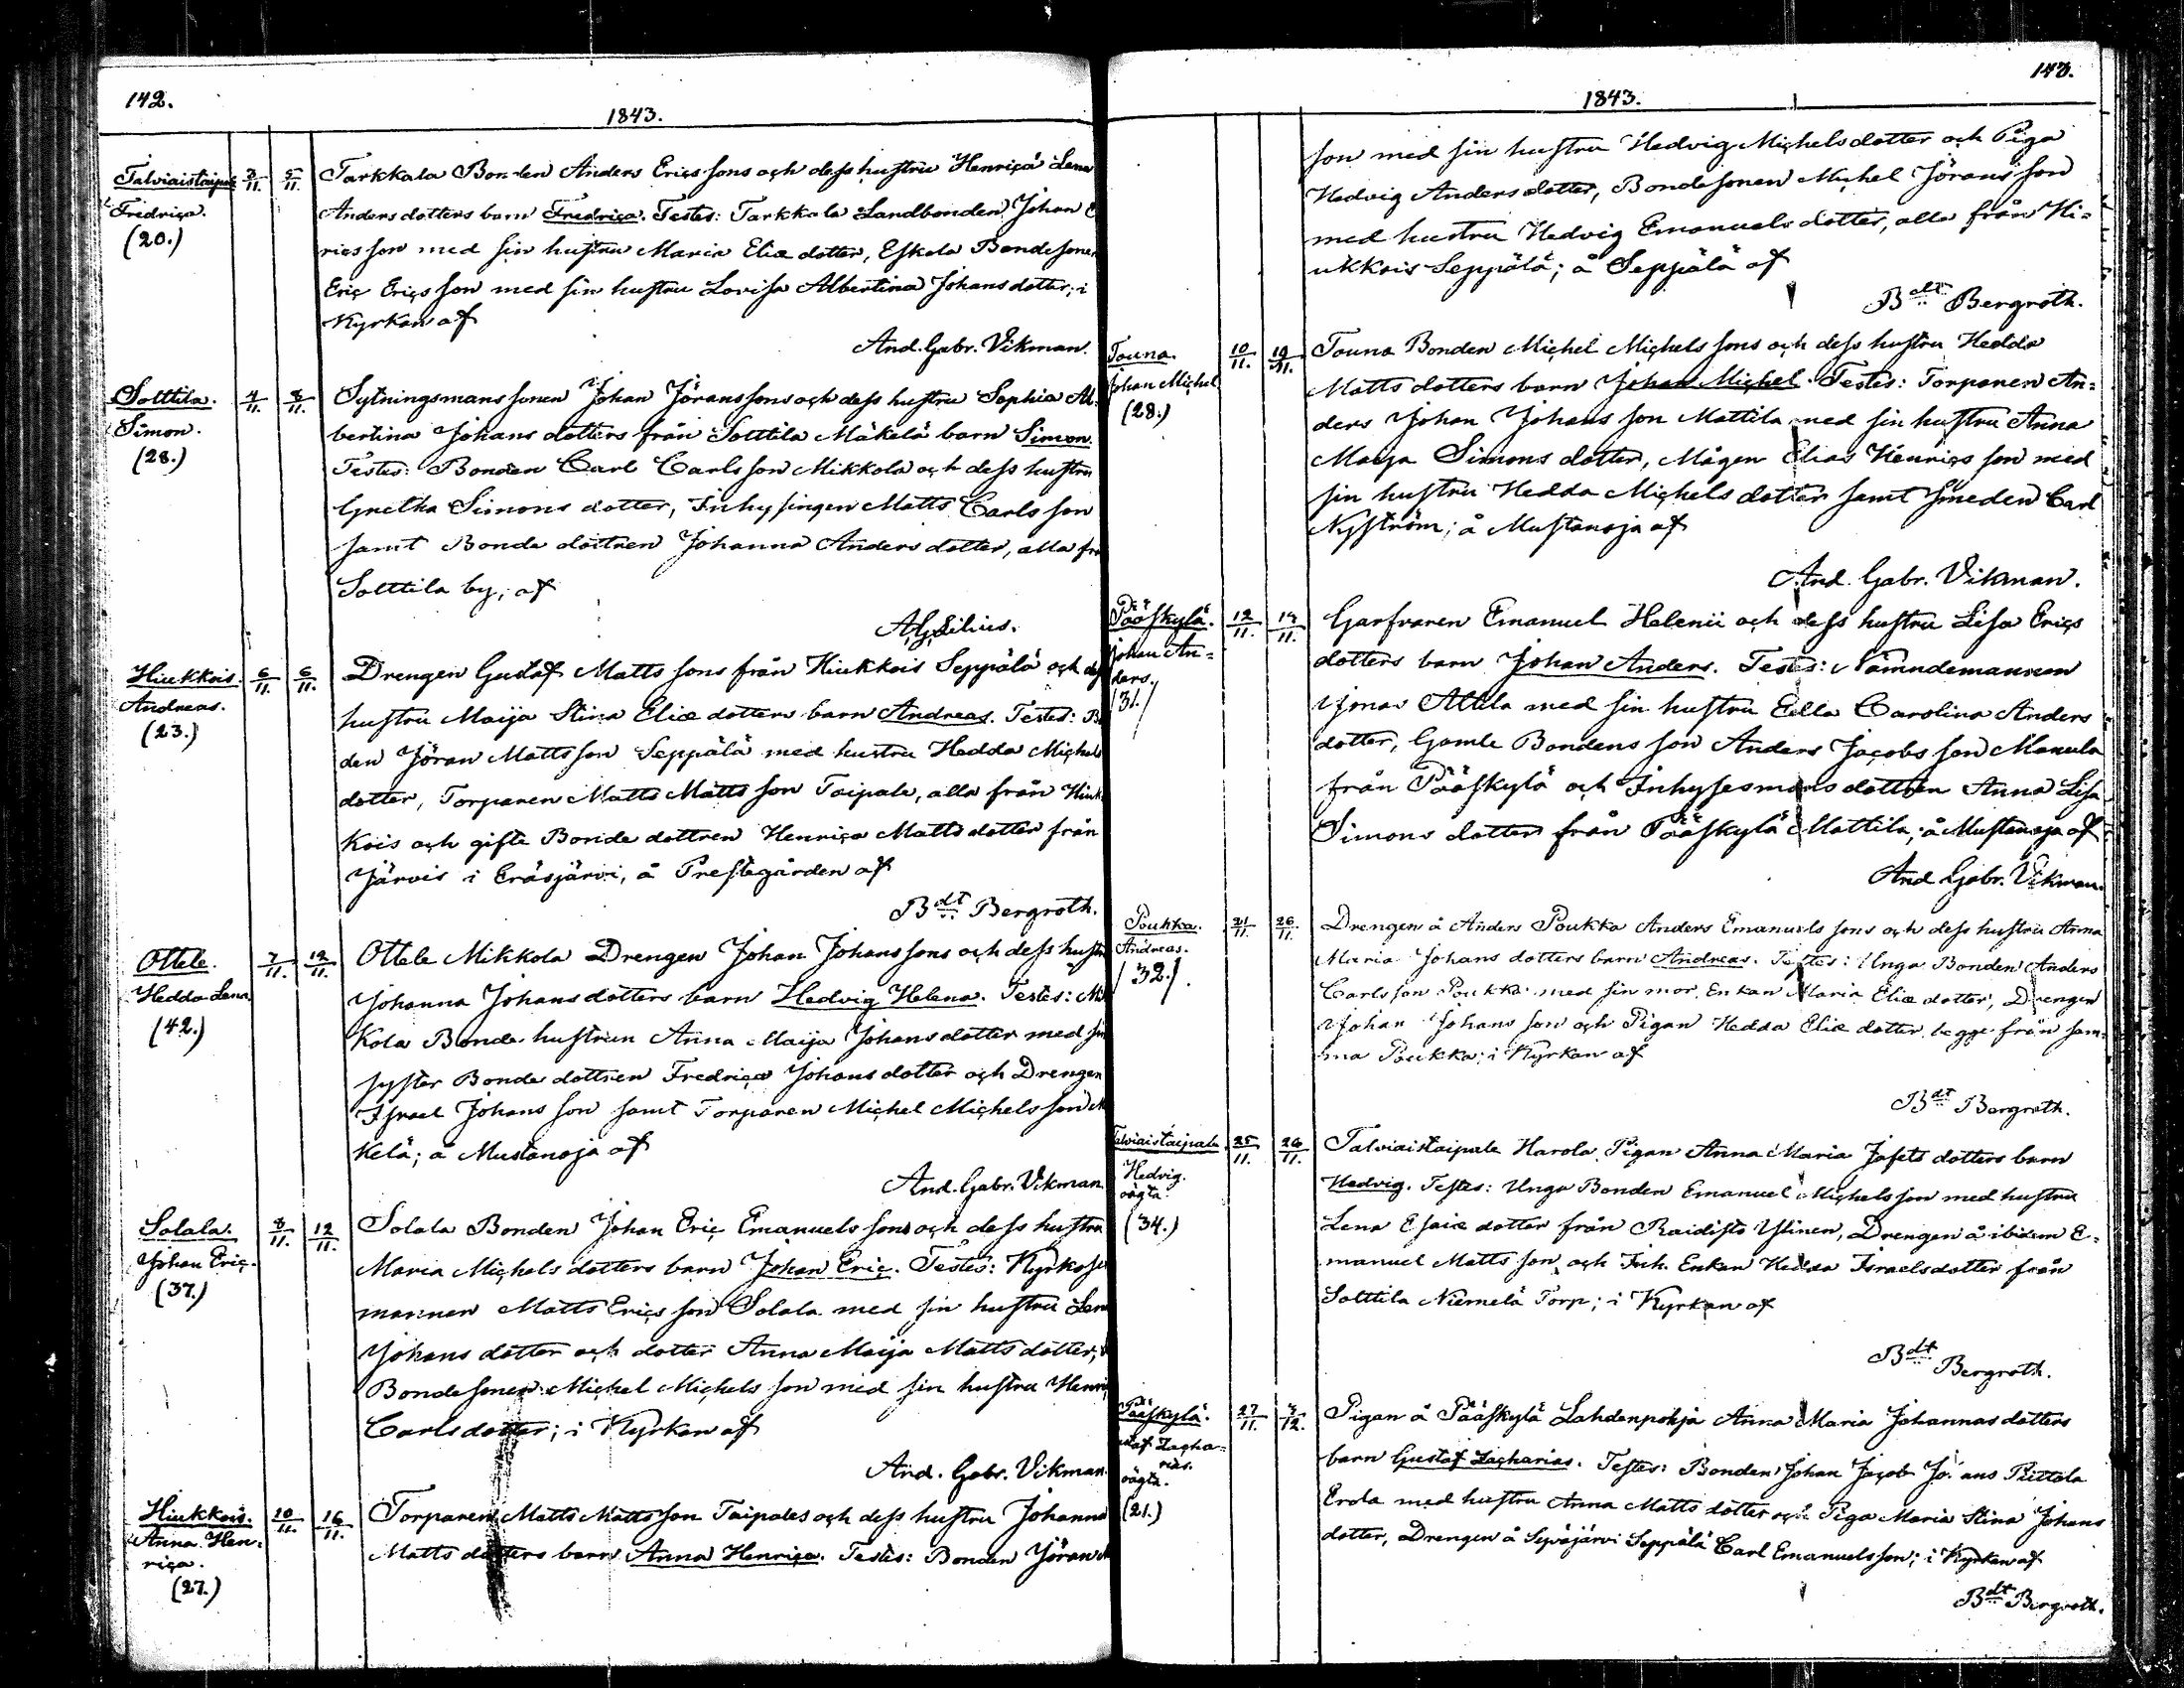 142.
1843.
Talviaistaipal
Fredriça.
(20.)
3/11. 5/11.
Tarkkala Bonden Anders Eriçs sons och dess hustru Henriçä Lena
Anders dotters barn Fredriça. Testes: Tarkkala Landbonden Johan E
rics son med sin hustru Maria Eliæ dotter, Eskola Bondesonen
Eriç Eriçs son med sin hustru Lovisa Albertina Johans dotter; i
Kyrkan af
And. Gabr. Vikman.
Solttila.
Simon.
(28.)
4/11. 8/11.
Sytningsmans sonen Johan Jöranssons och dess hustru Sophia Al-
bertina Johans dotters från Solttila Mäkelä barn Simon.
Testes: Bonden Carl Carlsson Mikkola och dess hustru
Gretha Simons dotter, Inhysingen Matts Carls son
samt Bonde dottren Johanna Anders dotter, alla frå
Solttila by; af
Hiukkois.
Andreas.
(23.)
6/11. 6/11.
Drengen Gustaf Matts sons från Hiukkois Seppälä och dess
hustru Maija Stina Eliæ dotters barn Andreas. Testes: Bon
den Jöran Mattsson Seppälä med hustru Hedda Michels
dotter, Torparen Matts Matts son Taipale, alla från Hiuk
kois och gifte Bonde dottren Henriça Matts dotter från
Järvis i Eräsjärvi, å Prestegården af
Bdt Bergroth.
Ottele.
Hedda Lena.
(42.)
7/11. 12/11.
Ottele Mikkola Drengen Johan Johanssons och dess hustru
Johanna Johansdotters barn Hedvig Helena. Testes: Mik
kola Bonde hustrun Anna Maija Johans dotter med sin
syster Bonde dottren Fredriça Johans dotter och Drengen
Israel Johans son samt Torparen Michel Michelsson Mä
kelä; å Mustanoja af
And. Gabr. Vikman
Solala.
Johan Eriç.
(37.)
8/11. 12/11.
Solala Bonden Johan Eriç Emanuels sons och dess hustru
Maria Michels dotters barn Johan Eriç. Testes: Kyrkose
mannen Matts Eriçs son Solala med sin hustru Lena
Johans dotter och dotter Anna Maija Matts dotter,
Bondesonen Michel Michels son med sin hustru Henri
Carlsdotter; i Kyrkan af
And. Gabr. Vikman.
Hiukkois.
Anna Hen-
riça.
(27.)
10/11. 16/11.
Torparen Matts Mattsson Taipales och dess hustru Johanna
Matts dotters barn Anna Henriça. Testes: Bonden Jöran M
143.
1843.
son med sin hustru Hedvig Michelsdotter och Piga
Hedvig Andersdotter, Bondesonen Michel Jöransson
med hustru Hedvig Emanuels dotter, alla från Hi-
ukkois Seppälä; å Seppälä af
Bdt Bergroth.
Touna.
Johan Michel
(28.)
10/11. 19/11.
Touna Bonden Michel Michels sons och dess hustru Hedda
Matts dotters barn Johan Michel. Testes: Torparen An-
ders Johan Johans son Mattila med sin hustru Anna
Maija Simons dotter, Mågen Elias Henriçs son med
sin hustru Hedda Michels dotter samt Smeden Carl
Nyström; å Mustanoja af
And. Gabr. Vikman.
Pääskylä.
Johan An-
ders.
/31./
12/11. 14/11.
Garfvaren Emanuel Helenii och dess hustru Lisa Eriçs
dotters barn Johan Anders. Testes: Nämndemannen
Jonas Attila med sin hustru Eella Carolina Anders
dotter, Gamle Bondens son Anders Jacobs son Manula
från Pääskylä och Inhysesmans dottren Anna Lisa
Simons dotter från Pääskylä Mattila; å Mustanoja af
And Gabr. Vikman.
Poukka.
Andreas.
/32./
21/11. 26/11.
Drengen å Anders Poukka Anders Emanuels sons och dess hustru Anna
Maria Johans dotters barn Andreas. Testes: Unga Bonden Anders
Carlsson Poukka med sin mor, Enkan Maria Eliæ dotter, Drengen
Johan Johans son och Pigan Hedda Eliæ dotter, begge från sam-
ma Poukka; i Kyrkan af
Bdt Bergroth.
Talviaistaipale.
Hedvig.
oägta.
(34.)
25/11. 26/11.
Talviaistaipale Harola Pigan Anna Maria Jafets dotters barn
Hedvig. Testes: Unga Bonden Emanuel Michelsson med hustru
Lena Esaiæ dotter från Raidisto Ylinen, Drengen å ibidem E-
manuel Matts son och Inh. Enkan Hedda Israelsdotter från
Solttila Niemelä Torp; i Kyrkan af
Bdt Bergroth.
Pääskylä.
staf Zacha-
rias.
oägta.
(21.)
27/11. 3/12.
Pigan å Pääskylä Lahdenpohja Anna Maria Johannas dotters
barn Gustaf Zacharias. Testes: Bonden Johan Jaçob Johans
Erola med hustru Anna Matts dotter och Piga Maria Stina Johans
dotter, Drengen å Sepäjärvi Seppälä Carl Emanuelsson; i Kyrkan af
Bdt Bergroth.